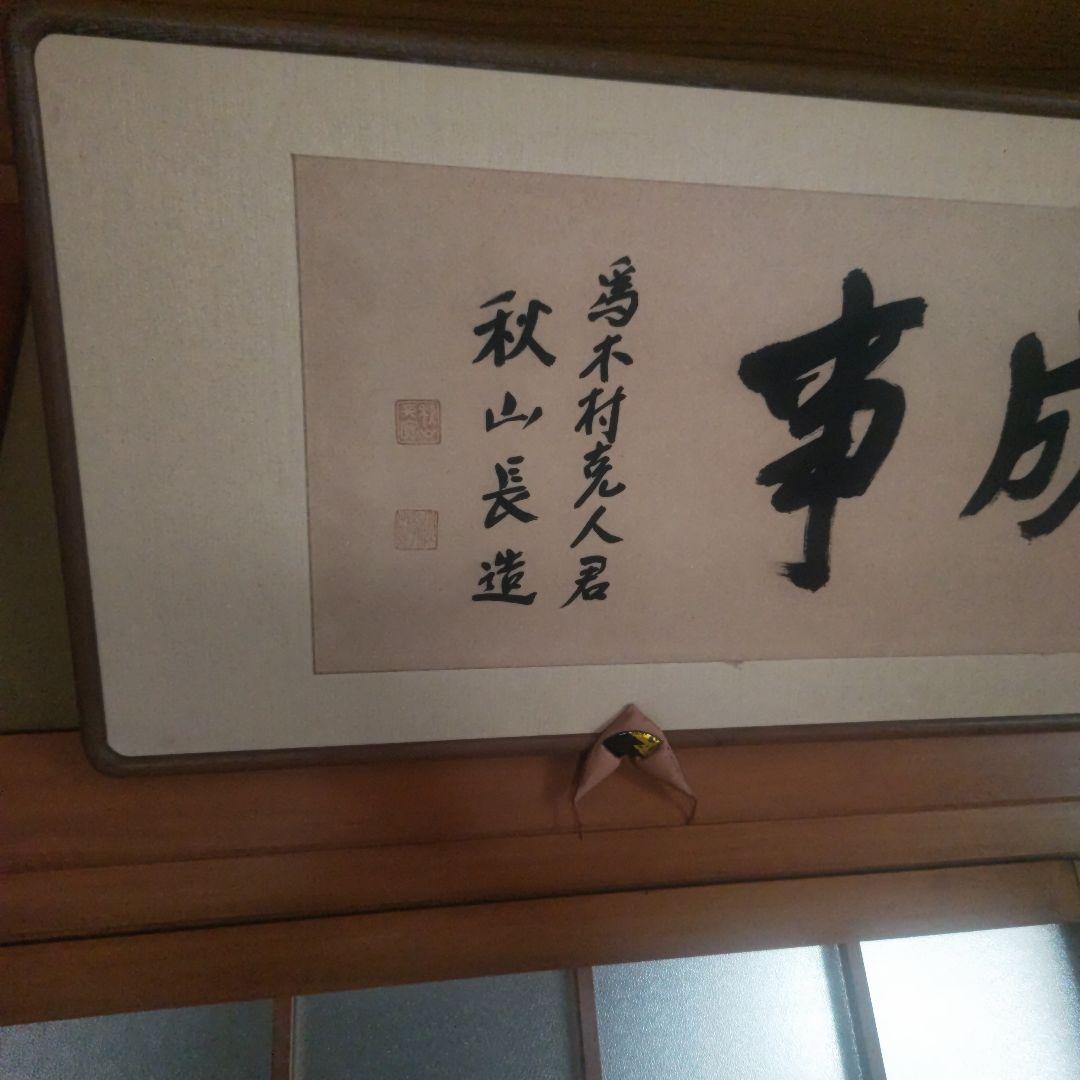 成事
為木村克人君
秋山長造